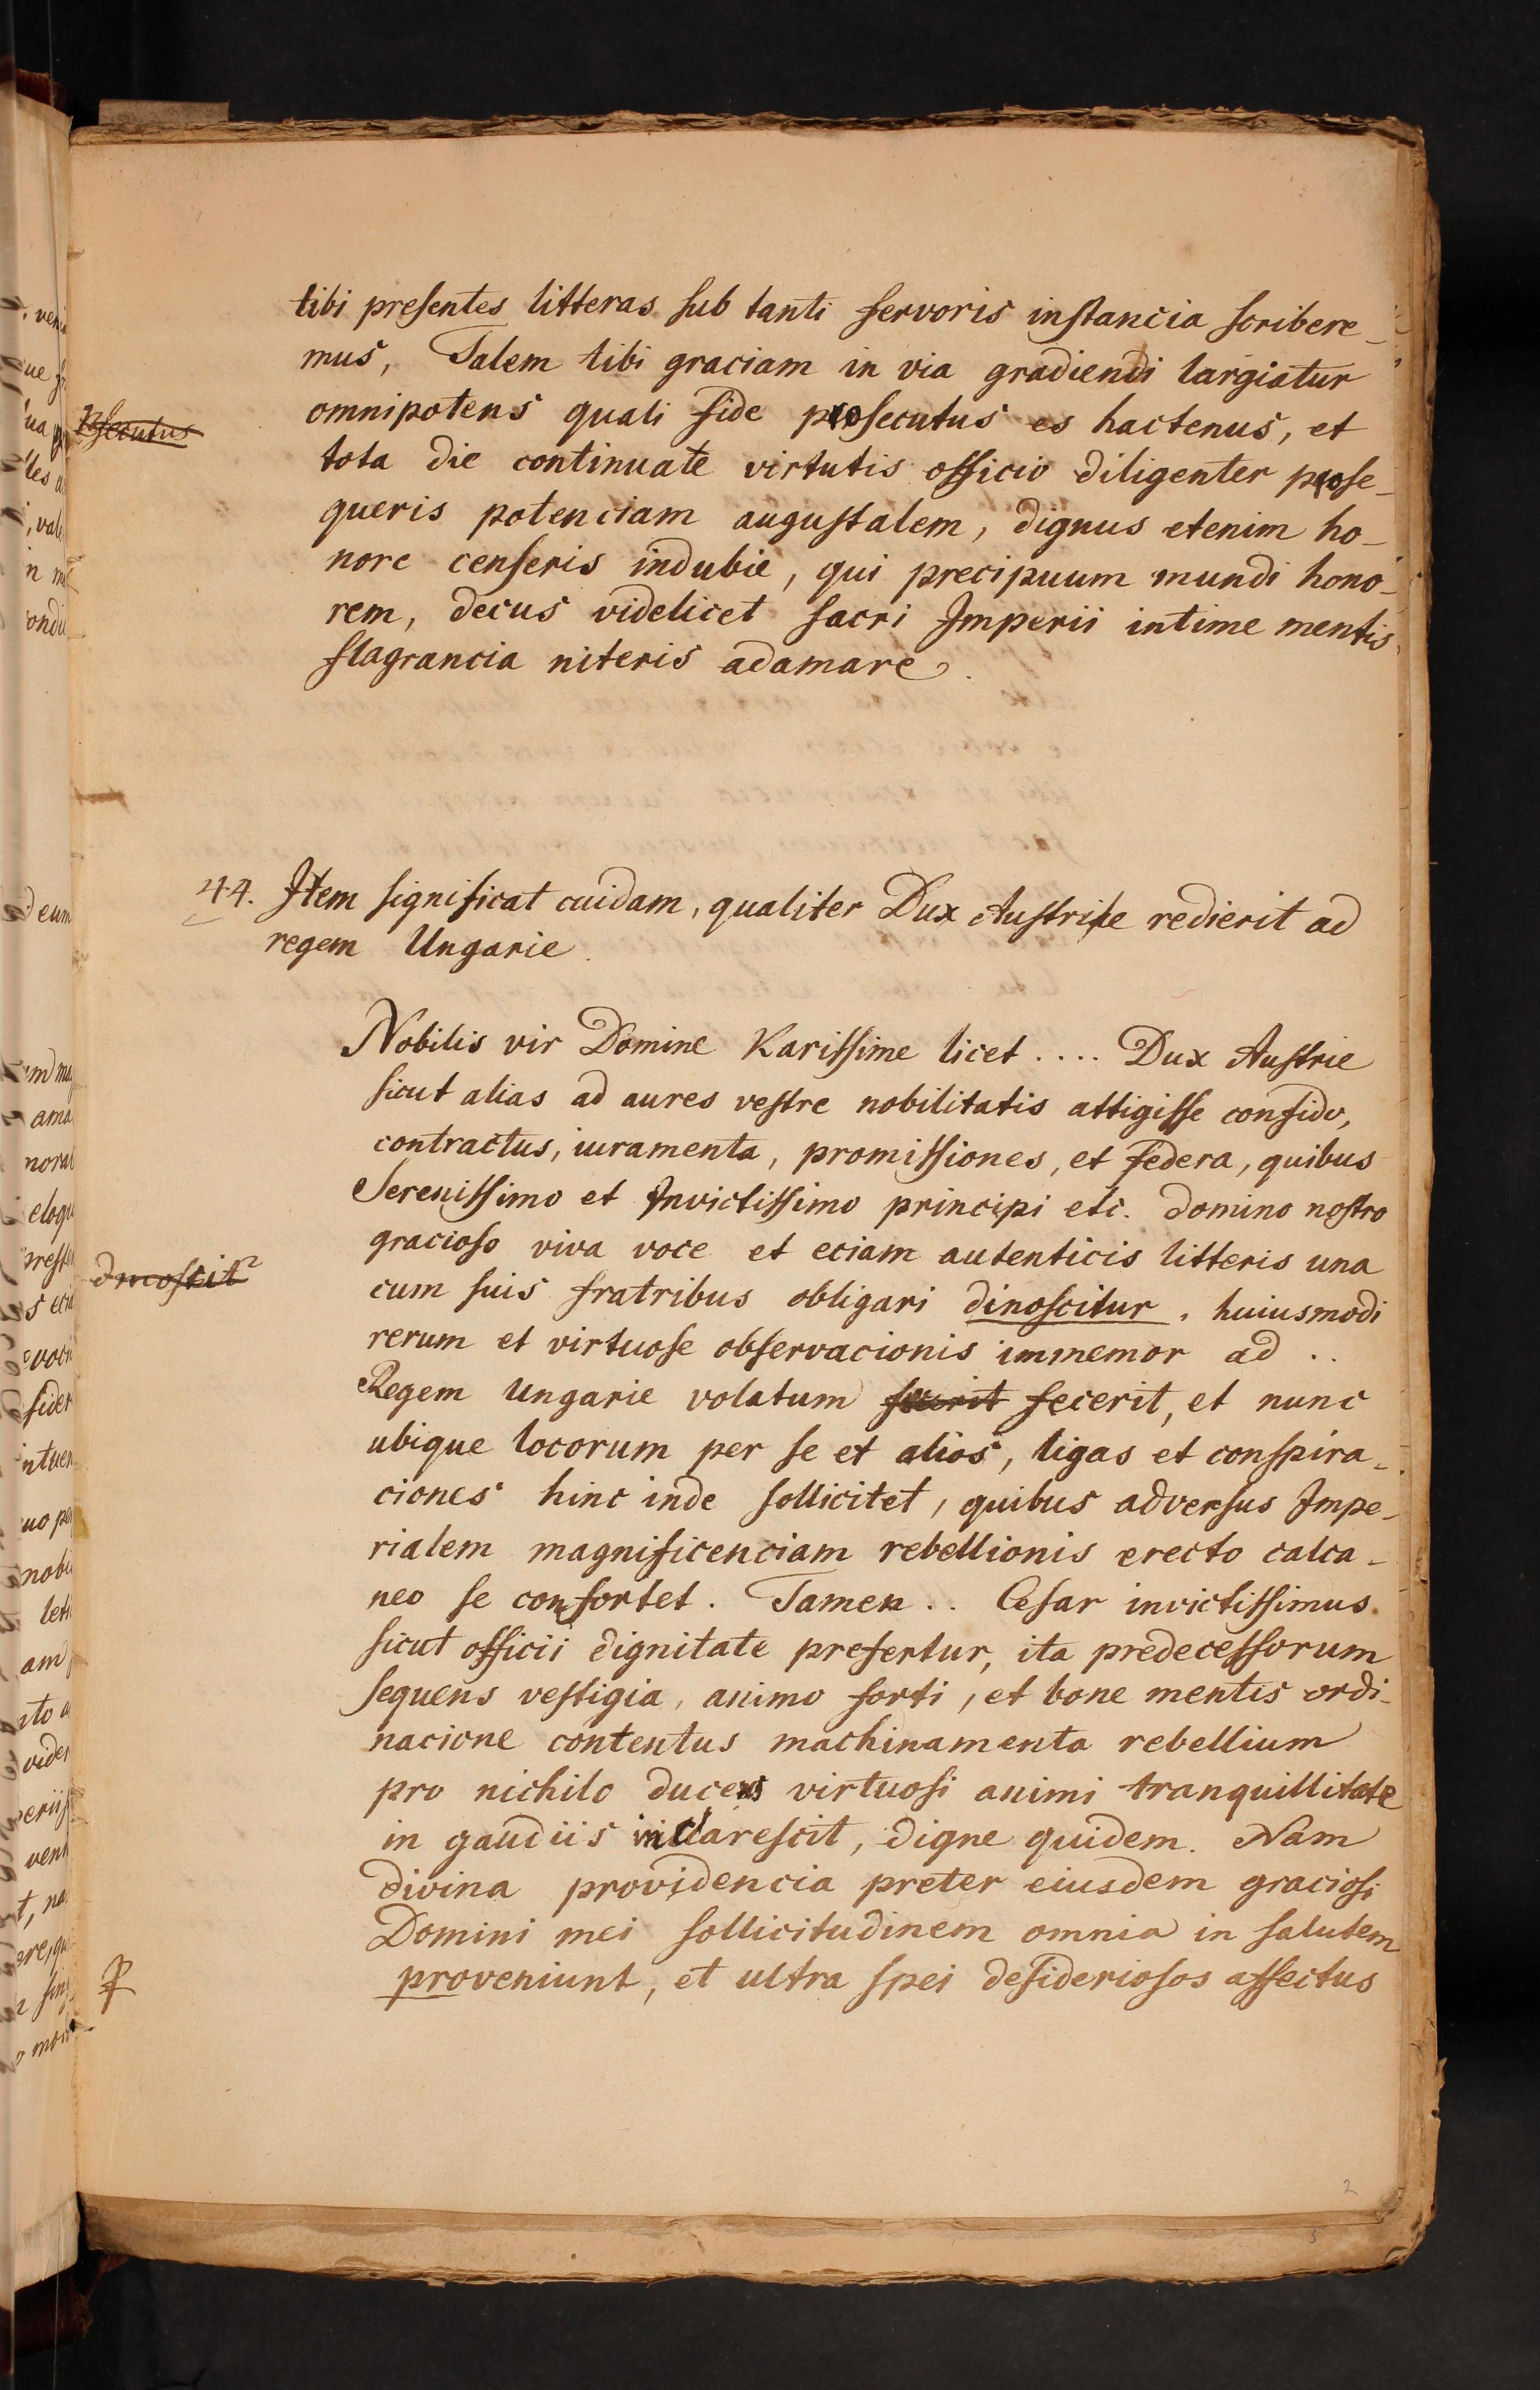 tibi presentes litteras sub tanti fervoris instancia scribere-
mus, Talem tibi graciam in via gradiendi largiatur
omnipotens quali fide prosecutus es hactenus, et
psecutus
tota die continuate virtutis officio diligenter prose-
queris potenciam augustalem, dignus etenim ho-
nore censeris indubie, qui precipuum mundi hono-
rem, decus videlicet sacri Imperii intime mentis
flagrancia niteris adamare.
44. Item significat cuidam, qualiter Dux Austrie redierit ad
regem Ungarie.
Nobilis vir Domine Karissime licet .... Dux Austrie
sicut alias ad aures vestre nobilitatis attigisse confido,
contractus, iuramenta, promissiones, et federa, quibus
Serenissimo et Invictissimo principi etc. domino nostro
gracioso viva voce et eciam autenticis litteris una
cum suis fratribus obligari dinoscitur, huiusmodi
dinoscit
rerum et virtuose observacionis immemor ad ..
Regem Ungarie volatum fuerit fecerit, et nunc
ubique locorum per se et alios, ligas et conspira-
ciones hinc inde sollicitet, quibus adversus Impe-
rialem magnificenciam rebellionis erecto calca-
neo se confortet. Tamen .. Cesar invictissimus
sicut officii dignitate prefertur, ita predecessorum
sequens vestigia, animo forti, et bone mentis ordi-
nacione contentus machinamenta rebellium
pro nichilo ducens virtuosi animi tranquillitate
in gaudiis inclarescit, digne quidem. Nam
divina providencia preter eiusdem graciosi
Domini mei sollicitudinem omnia in salutem
proveniunt, et ultra spei desideriosos affectus